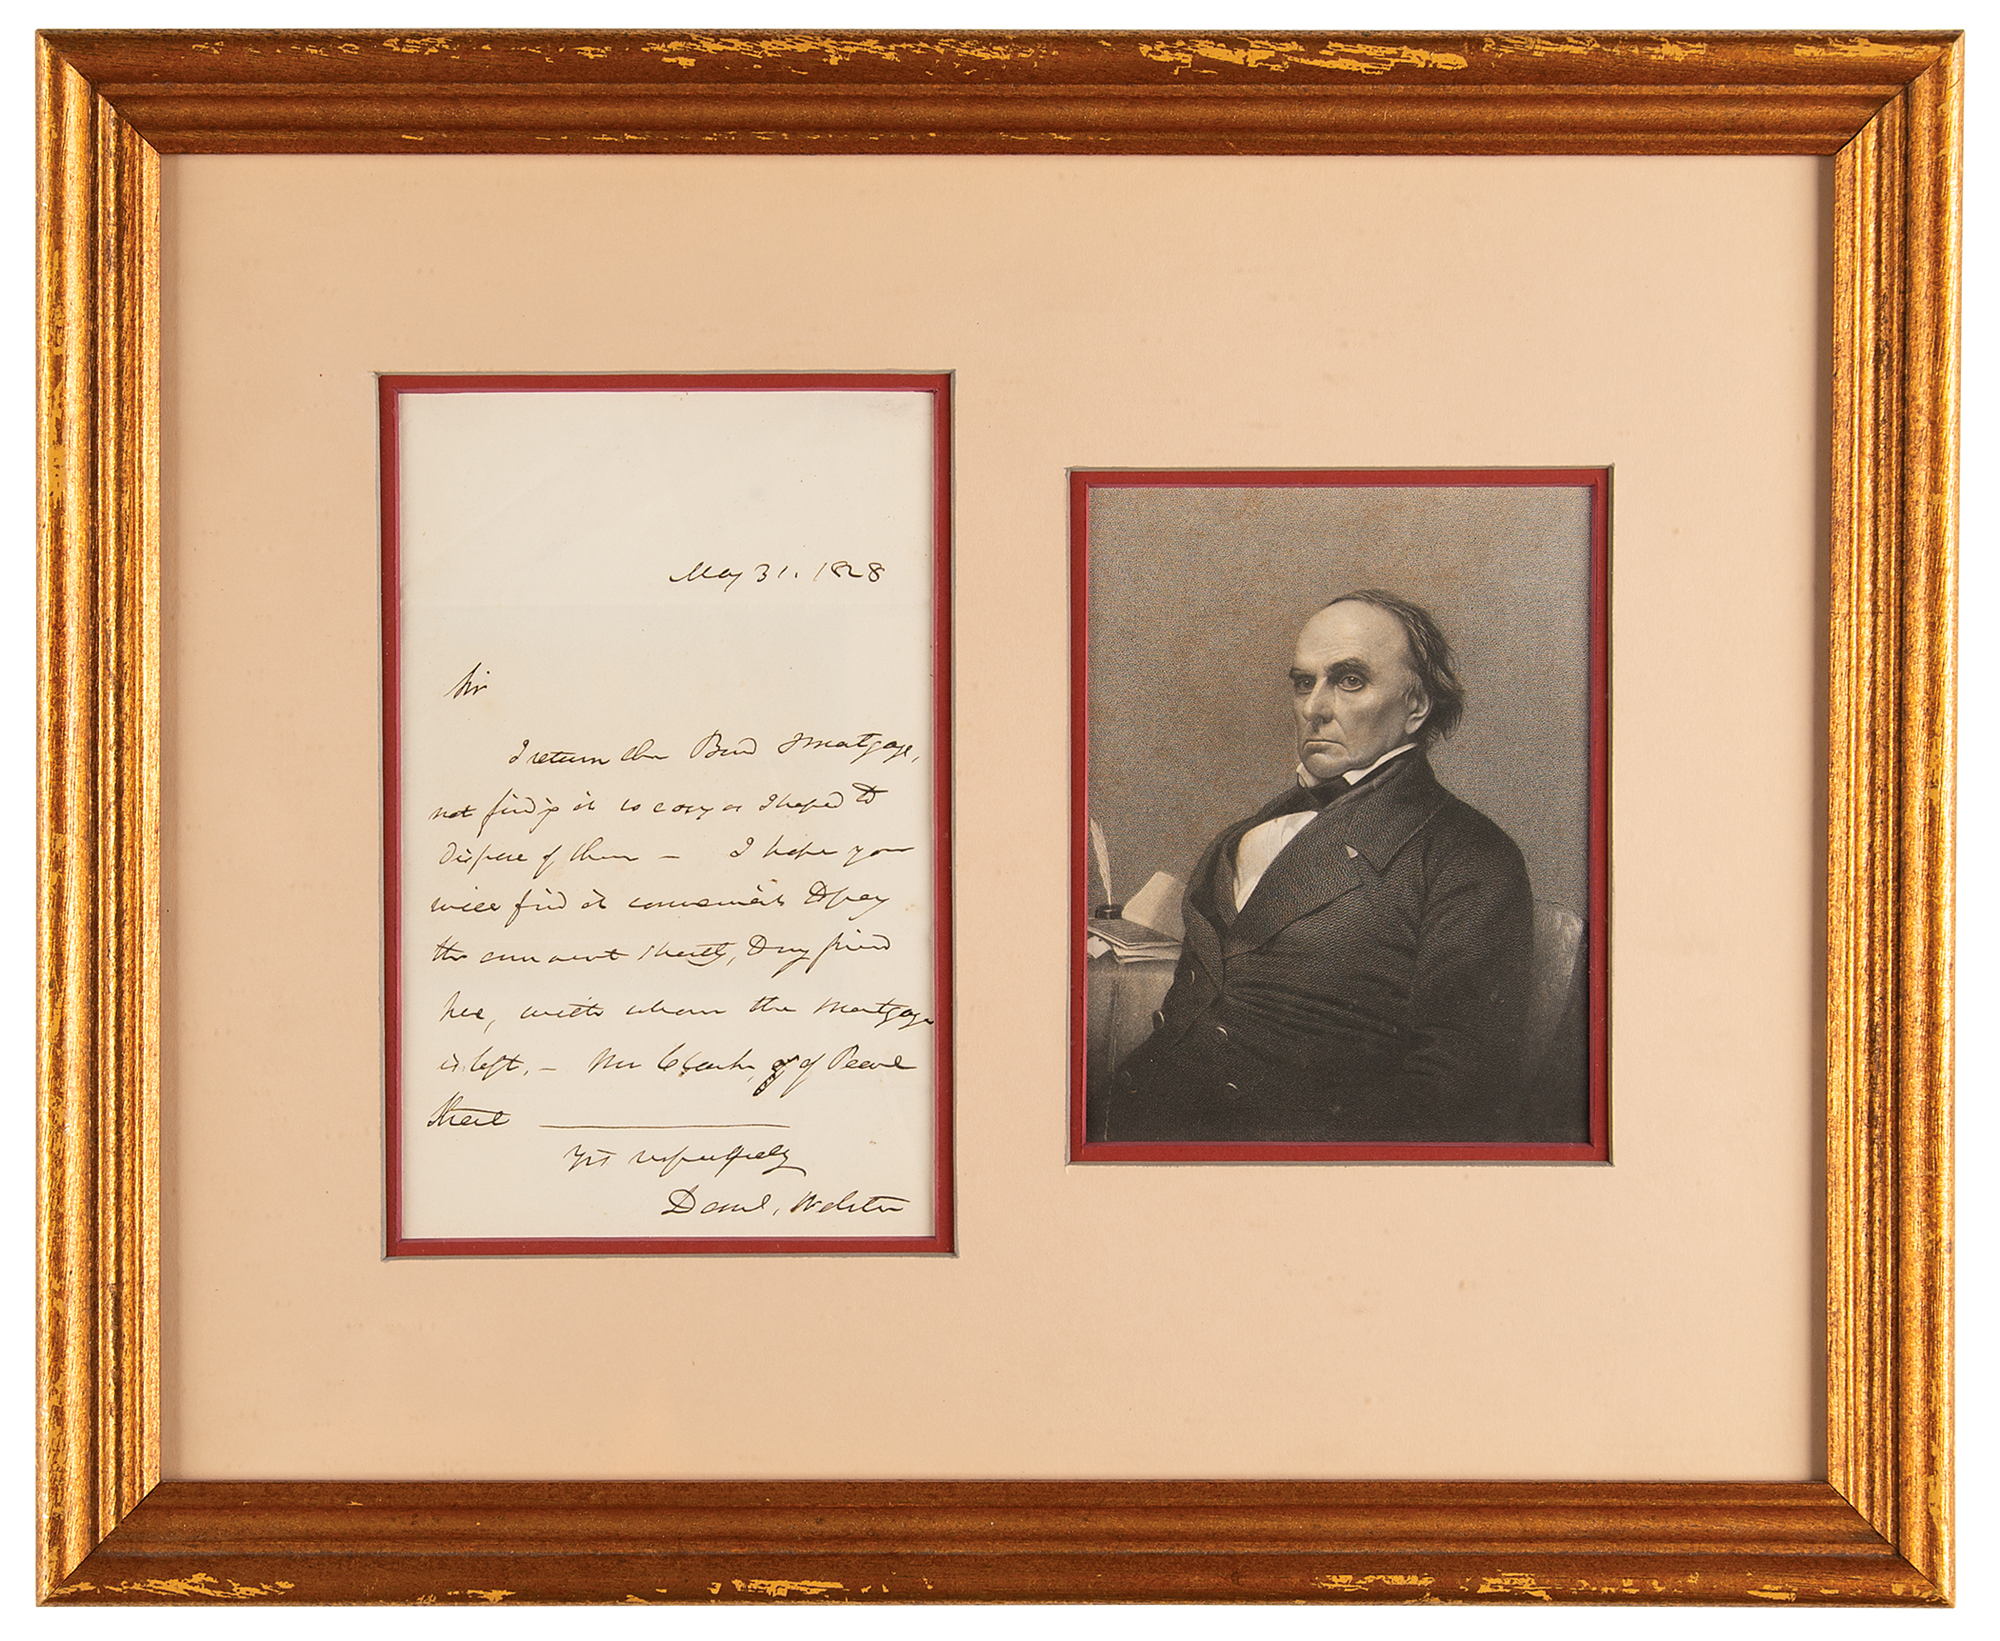 May 31. 1828
Sir
I return the Bond & mortgage,
not findg it so easy as I hoped to
dispose of them — I hope you
will find it convenient to pay
the amount shortly, to my friend
here, with whom the mortgage
is left. — Mr Clark, of Pearl
Street
Yrs respectfully
Danl. Webster